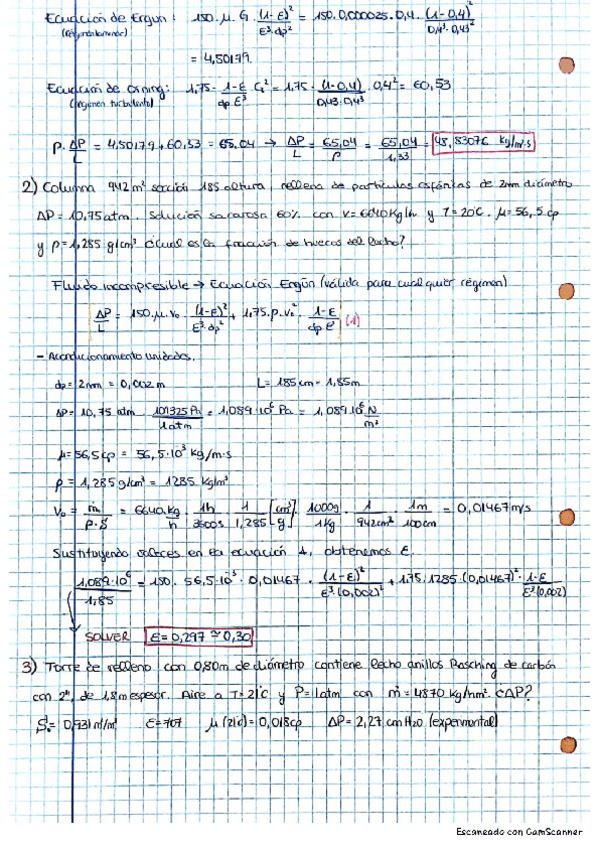 Ecuación de Ergun: 150·μ·G·(1-ε)²/ε³·dp² = 150·0,000025·0,4·(1-0,4)²/0,4³·0,43²
(régimen laminar)
= 4,50179
Ecuación de : 1,75·1-ε/dp ε³ G² = 1,75·(1-0,4)/0,43·0,4³·0,4² = 60,53
(régimen turbulento)
ρ·ΔP/L = 4,50179+60,53 = 65,04 → ΔP/L = 65,04/ρ = 65,04/1,33 = 48,83076 kg/m²·s
2) Columna 942 m² sección 185 altura, rellena de partículas esféricas de 2mm diámetro
ΔP = 10,75 atm. Solución sacarosa 60% con V= 6640 kg/h y T= 20°C. μ= 56,5 cp
y ρ= 1,285 g/cm³ ¿cual es la fracción de huecos del lecho?
Fluido incompresible → Ecuación Ergün (válida para cualquier régimen)
ΔP/L = 150·μ·V₀·(1-ε)²/ε³·dp² + 1,75·ρ·V₀²·1-ε/dp ε³ (1)
- Acondicionamiento unidades.
dp = 2mm = 0,002 m L= 185 cm = 1,85m
ΔP= 10,75 atm · 101325 Pa/1 atm = 1,089·10⁶ Pa = 1,089·10⁶ N/m²
μ= 56,5 cp = 56,5·10³ kg/m·s
ρ = 1,285 g/cm³ = 1285 kg/m³
V₀ = ṁ/ρ·S = 6640 kg/h · 1h/3600s · 1/1,285 [cm³/g] · 1000g/1kg · 1/942cm² · 1m/100cm = 0,01467 m/s
Sustituyendo valores en la ecuación 1, obtenemos ε.
1,089·10⁶/1,85 = 150·56,5·10⁻³·0,01467·(1-ε)²/ε³(0,002)² + 1,75·1285·(0,01467)²·1-ε/ε³(0,002)
SOLVER ε= 0,297 ≅ 0,30
3) Torre de relleno con 0,80m de diámetro contiene lecho anillos Rasching de carbón
con 2", de 1,8m espesor. Aire a T= 21°C y P= 1atm con ṁ= 4870 kg/hm². ¿ΔP?
= 0,931 m²/m³ ε= 707 μ(21°C) = 0,018cp ΔP = 2,27 cm H₂O (experimental)
Escaneado con CamScanner